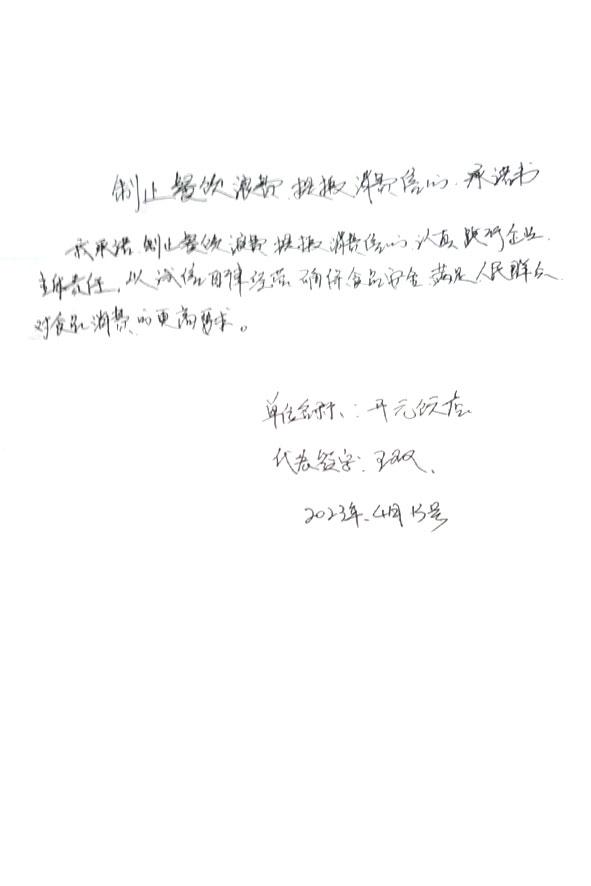 制止餐饮浪费 提振消费信心 承诺书
我承诺 制止餐饮浪费 提振消费信心 认真践行企业
主体责任,以诚信自律经营 确保食品安全 满足人民群众
对食品消费的更高要求。
单位名称:开元饭店
代表签字:王双
2023年4月13号